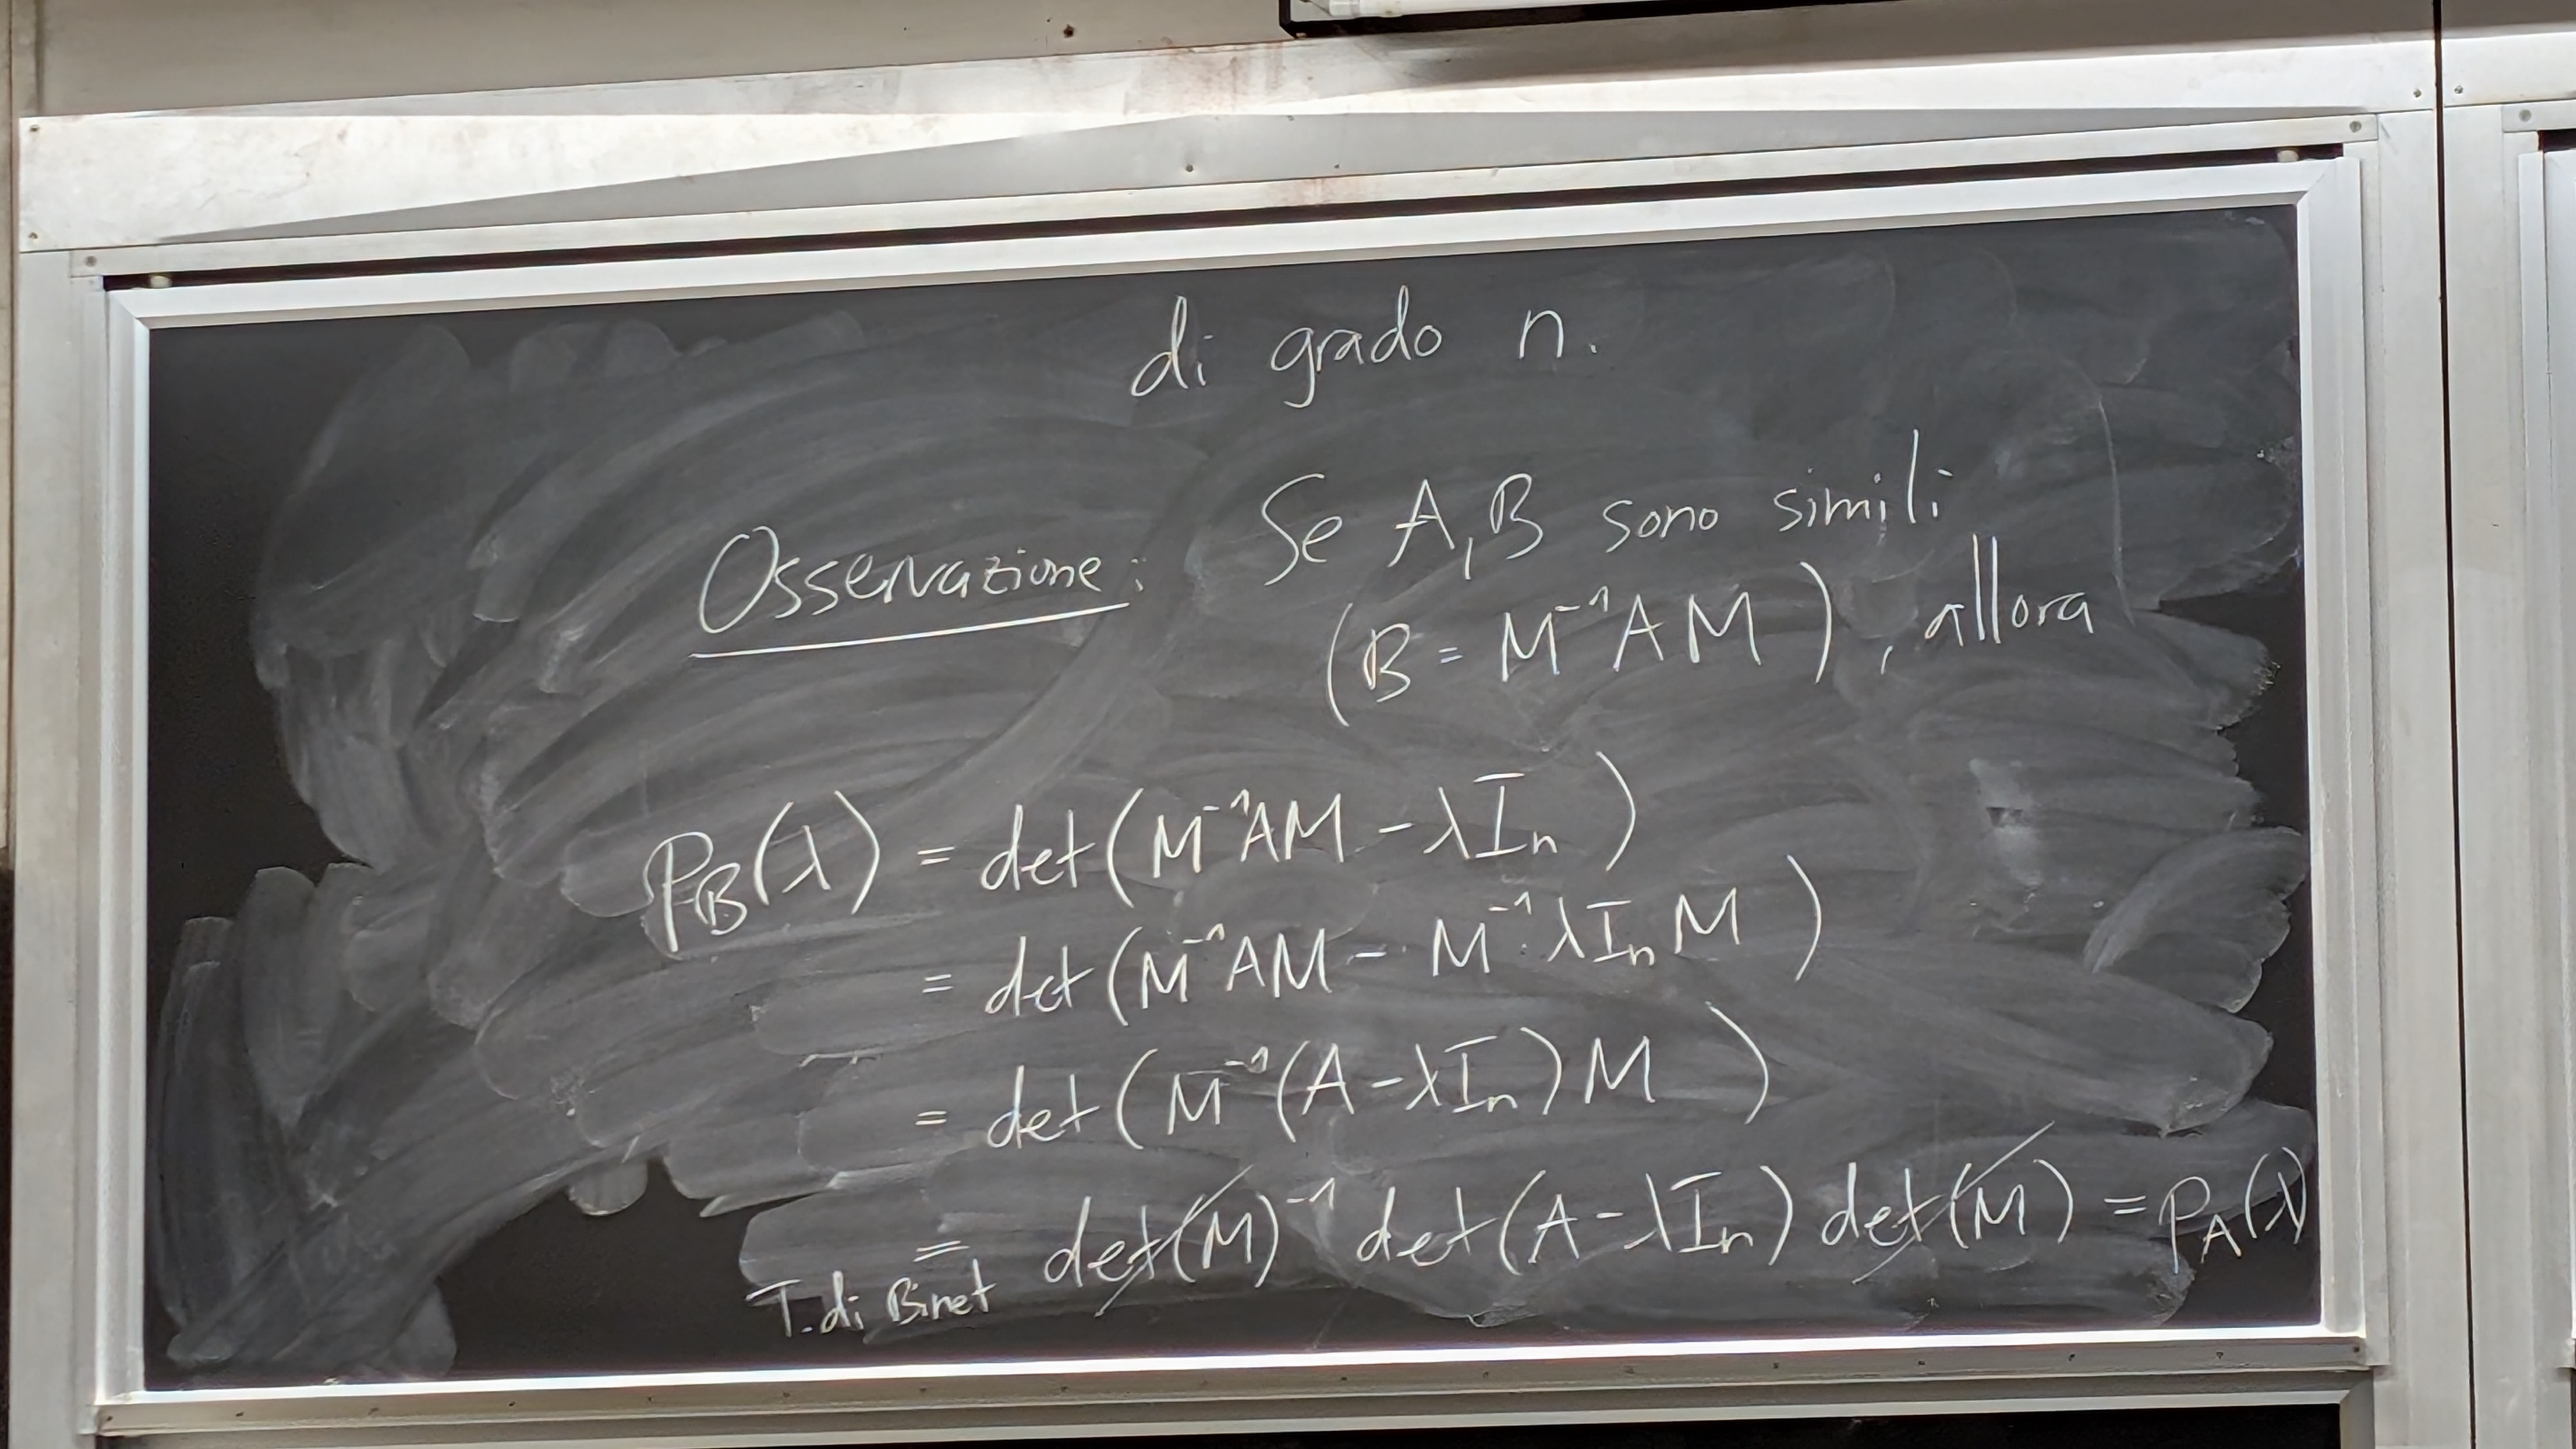 di grado n.
Osservazione: Se A, B sono simili
(B = M⁻¹AM), allora
p_B(λ) = det(M⁻¹AM - λI_n)
= det(M⁻¹AM - M⁻¹λI_nM)
= det(M⁻¹(A - λI_n)M)
= det(M)⁻¹ det(A - λI_n) det(M) = p_A(λ)
T. di Binet